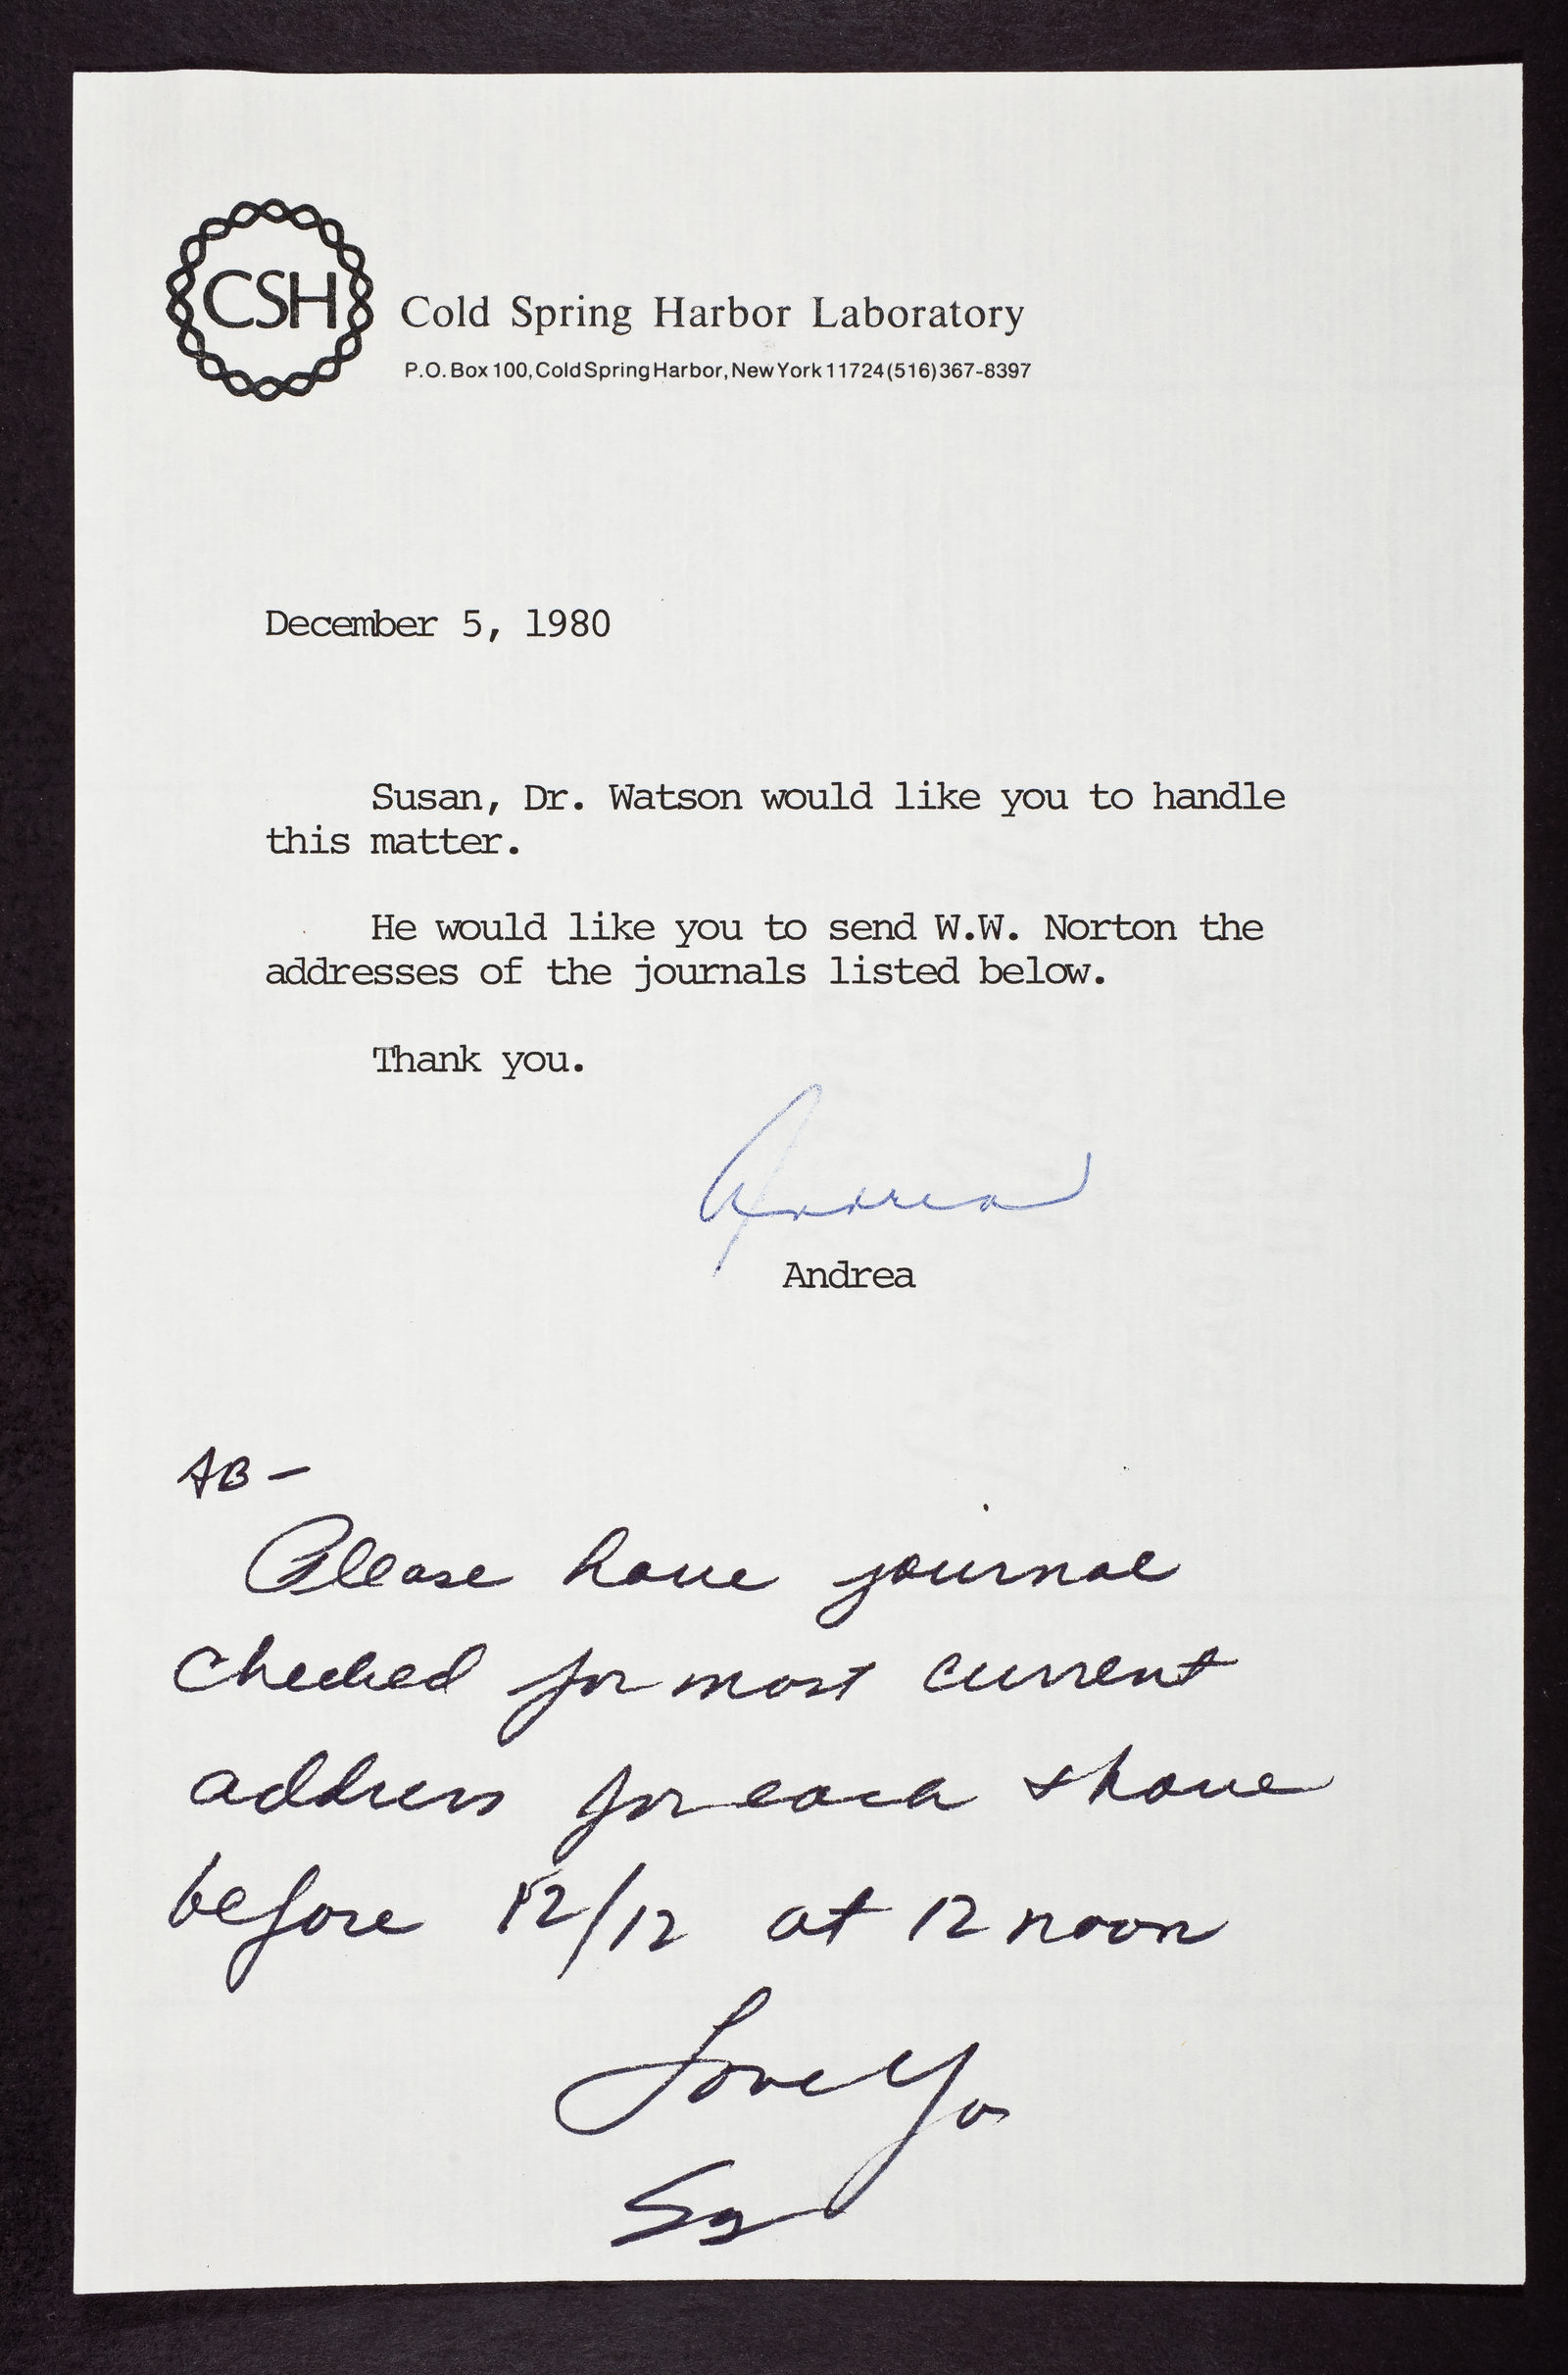 CSH
Cold Spring Harbor Laboratory
P.O. Box 100, Cold Spring Harbor, New York 11724 (516) 367-8397
December 5, 1980
Susan, Dr. Watson would like you to handle
this matter.
He would like you to send W.W. Norton the
addresses of the journals listed below.
Thank you.
Andrea
Andrea
AB -
Please have journal
checked for most current
address for each & have
before 12/12 at 12 noon
Love Ya